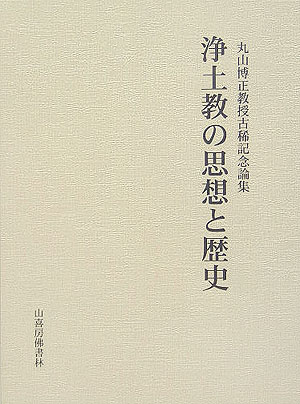 丸山博正教授古稀記念論集
浄土教の思想と歴史
山喜房佛書林